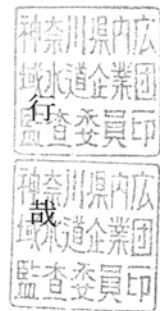 神奈川県内広
域水道企業団
監査委員印
行
神奈川県内広
域水道企業団
監査委員印
哉